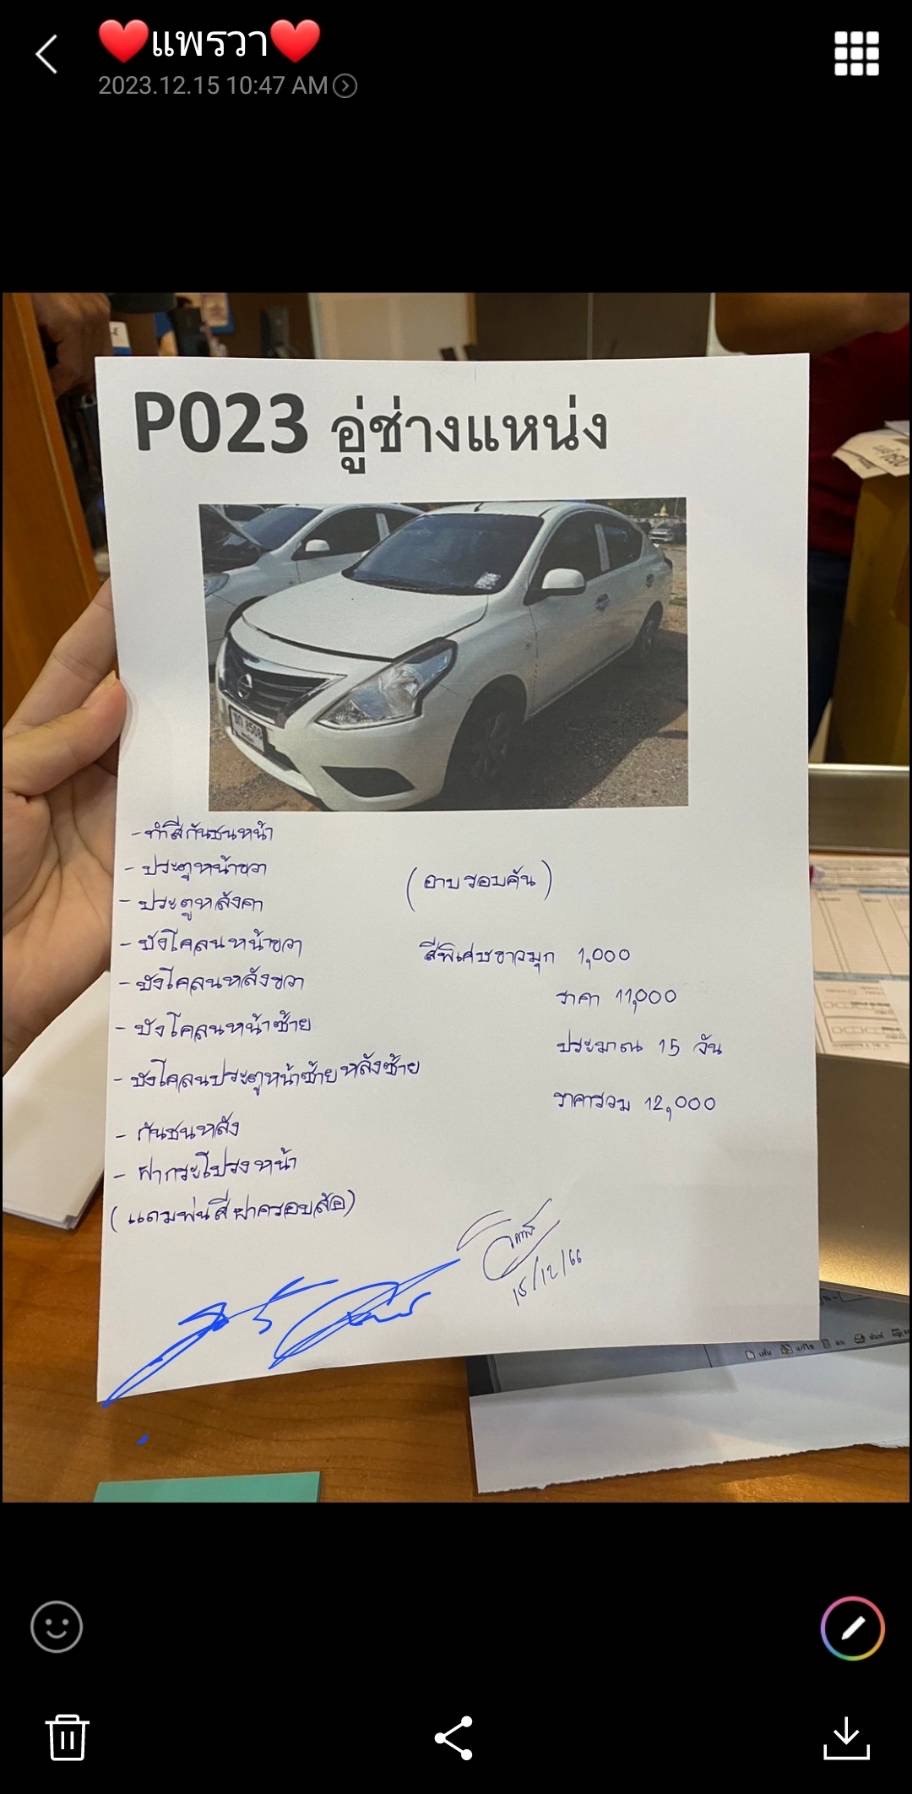 ❤️แพรวา❤️
2023.12.15 10:47 AM
P023 อู่ช่างแหน่ง
- ทำสีกันชนหน้า
- ประตูหน้าขวา
(อาบรอบคัน)
- ประตูหลังคา
- บังโคลนหน้าขวา
สีพิเศษขาวมุก 1,000
- บังโคลนหลังขวา
ราคา 11,000
- บังโคลนหน้าซ้าย
ประมาณ 15 วัน
- บังโคลนประตูหน้าซ้าย หลังซ้าย
ราคารวม 12,000
- กันชนหลัง
- ฝากระโปรงหน้า
(แถมพ่นสีฝาครอบล้อ)
15/12/66